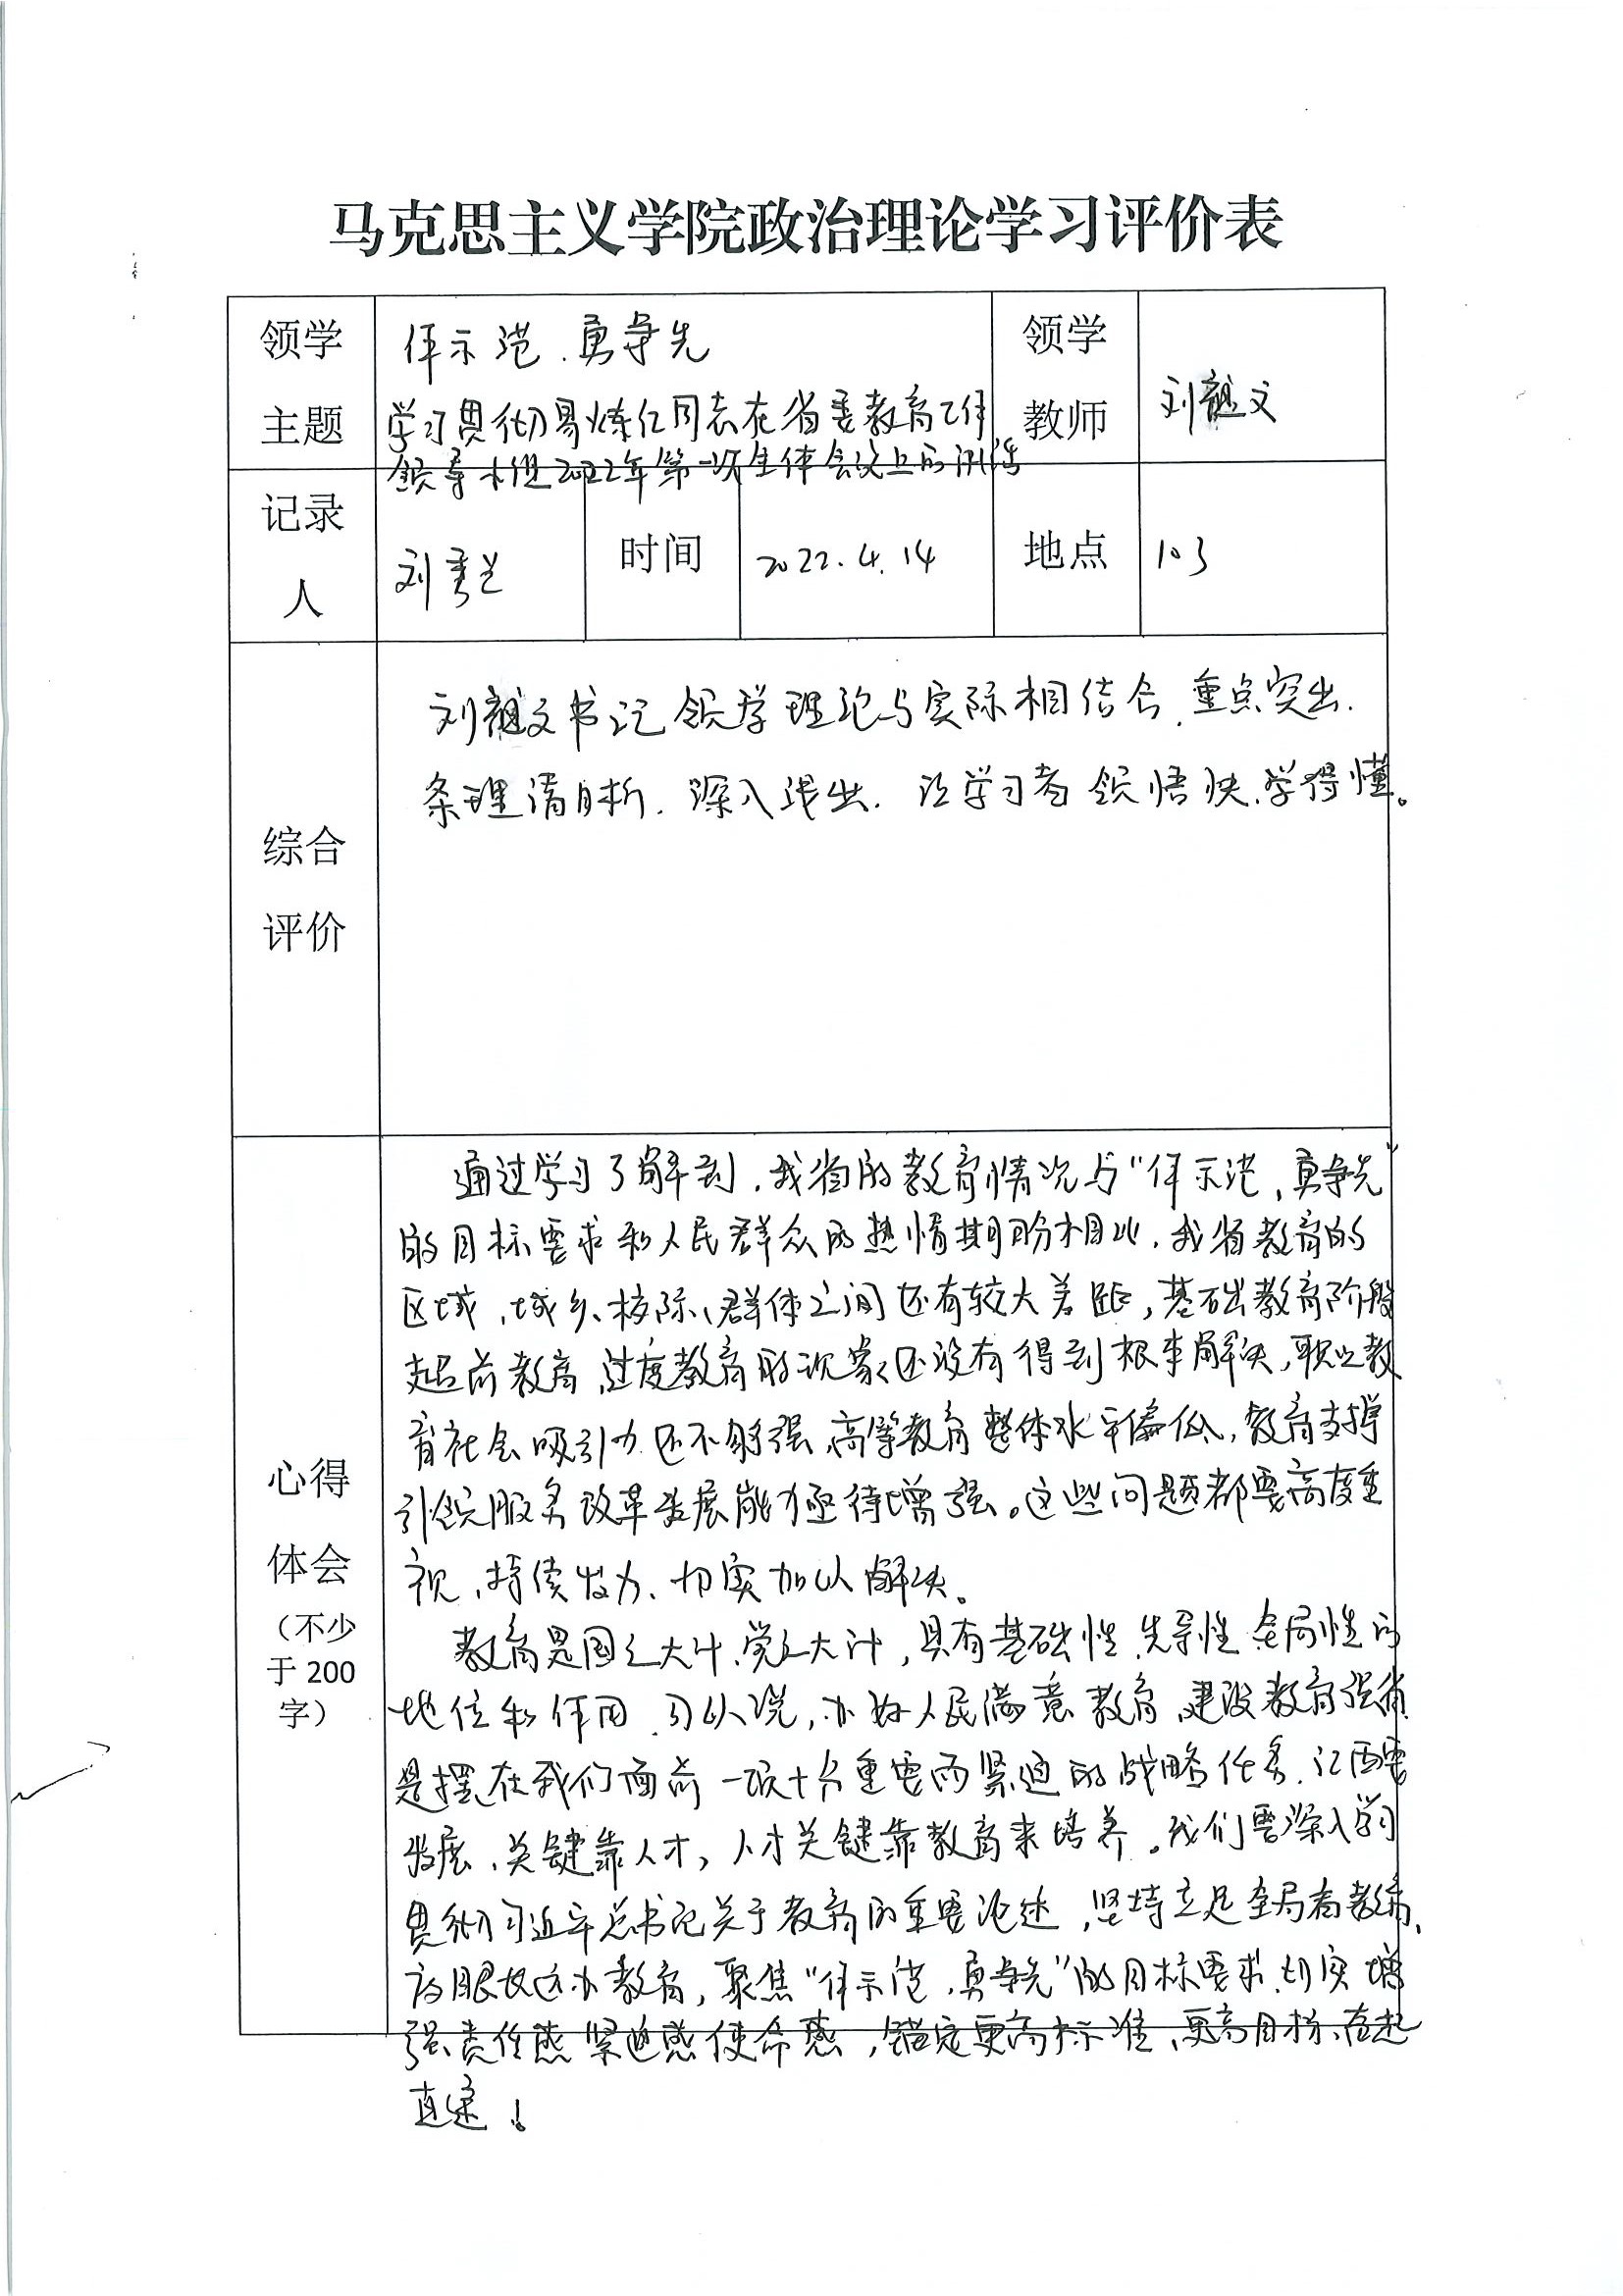 马克思主义学院政治理论学习评价表
领学
主题
作示范、勇争先
学习贯彻易炼红同志在省委教育工作
领导小组2022年第一次全体会议上的讲话
领学
教师
刘 文
记录
人
刘
时间
2022.4.14
地点
103
综合
评价
刘 文书记领学理论与实际相结合、重点突出、
条理清晰、深入浅出、让学习者领悟快、学得懂。
心得
体会
（不少
于 200
字）
通过学习了解到，我省的教育情况与“作示范、勇争先”
的目标要求和人民群众的热情期盼相比，我省教育的
区域、城乡、校际、群体之间还有较大差距，基础教育阶段
超前教育、过度教育的现象还没有得到根本解决，职业教
育社会吸引力还不够强，高等教育整体水平偏低，教育支撑
引领服务改革发展能力亟待增强。这些问题都要高度重
视、持续发力、切实加以解决。
教育是国之大计、党之大计，具有基础性、先导性、全局性的
地位和作用，可以说，办好人民满意教育、建设教育强省
是摆在我们面前一项十分重要而紧迫的战略任务，江西要
发展、关键靠人才，人才关键靠教育来培养。我们要深入学习
贯彻习近平总书记关于教育的重要论述，坚持立足全局看教育、
放眼长远办教育，聚焦“作示范、勇争先”的目标要求，切实增
强责任感紧迫感使命感，锚定更高标准、更高目标、奋起
直追！